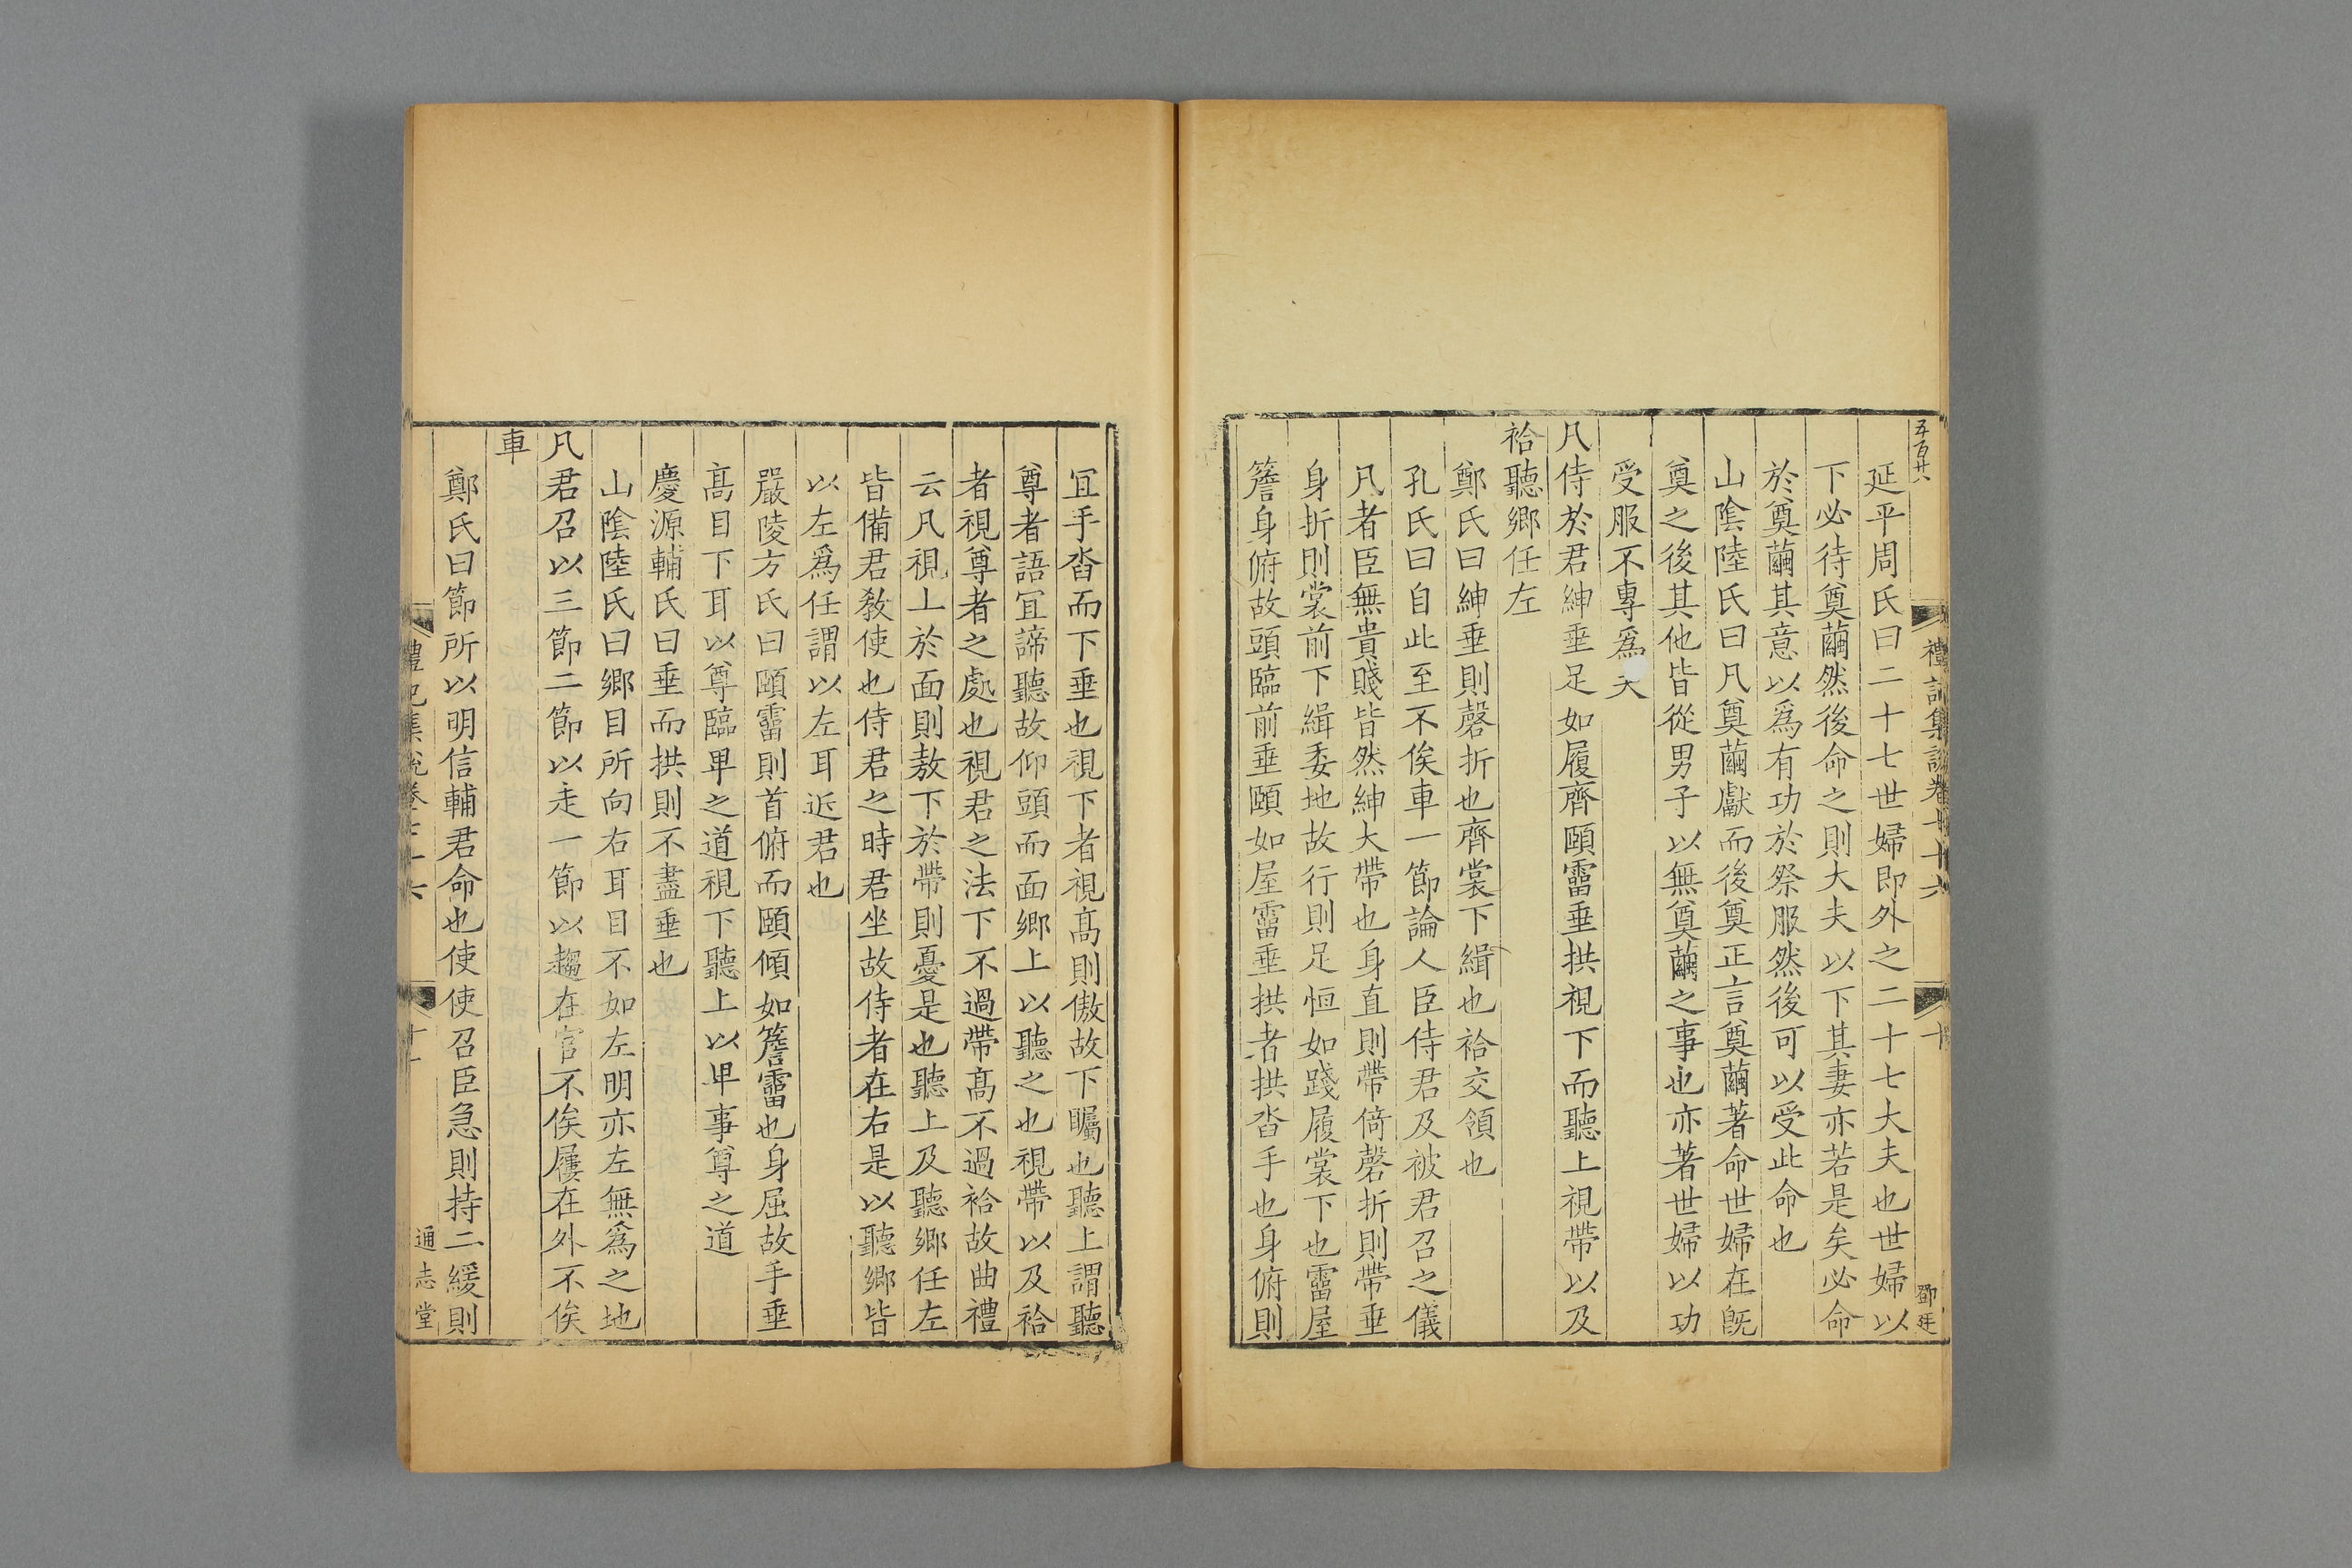 五百廿六
禮記集說卷七十六
十
鄧廷
延平周氏曰二十七世婦即外之二十七大夫也世婦以
下必待奠繭然後命之則大夫以下其妻亦若是矣必命
於奠繭其意以為有功於祭服然後可以受此命也
山隂陸氏曰凡奠繭獻而後奠正言奠繭著命世婦在旣
奠之後其他皆從男子以無奠繭之事也亦著世婦以功
受服不專為夫
凡侍於君紳垂足如履齊頤霤垂拱視下而聽上視帶以及
袷聽鄉任左
鄭氏曰紳垂則磬折也齊裳下緝也袷交領也
孔氏曰自此至不俟車一節論人臣侍君及被君召之儀
凡者臣無貴賤皆然紳大帶也身直則帶倚磬折則帶垂
身折則裳前下緝委地故行則足恒如踐履裳下也霤屋
簷身俯故頭臨前垂頤如屋霤垂拱者拱沓手也身俯則
冝手沓而下垂也視下者視髙則傲故下矚也聽上謂聽
尊者語冝諦聽故仰頭而面鄉上以聽之也視帶以及袷
者視尊者之處也視君之法下不過帶髙不過袷故曲禮
云凡視上於面則敖下於帶則憂是也聽上及聽鄉任左
皆備君敎使也侍君之時君坐故侍者在右是以聽鄉皆
以左為任謂以左耳近君也
嚴陵方氏曰頤霤則首俯而頤傾如簷霤也身屈故手垂
髙目下耳以尊臨畢之道視下聽上以卑事尊之道
慶源輔氏曰垂而拱則不盡垂也
山隂陸氏曰鄉目所向右耳目不如左明亦左無為之地
凡君召以三節二節以走一節以趨在官不俟屨在外不俟
車
鄭氏曰節所以明信輔君命也使使召臣急則持二緩則
禮記集說卷七十六
十一
通志堂